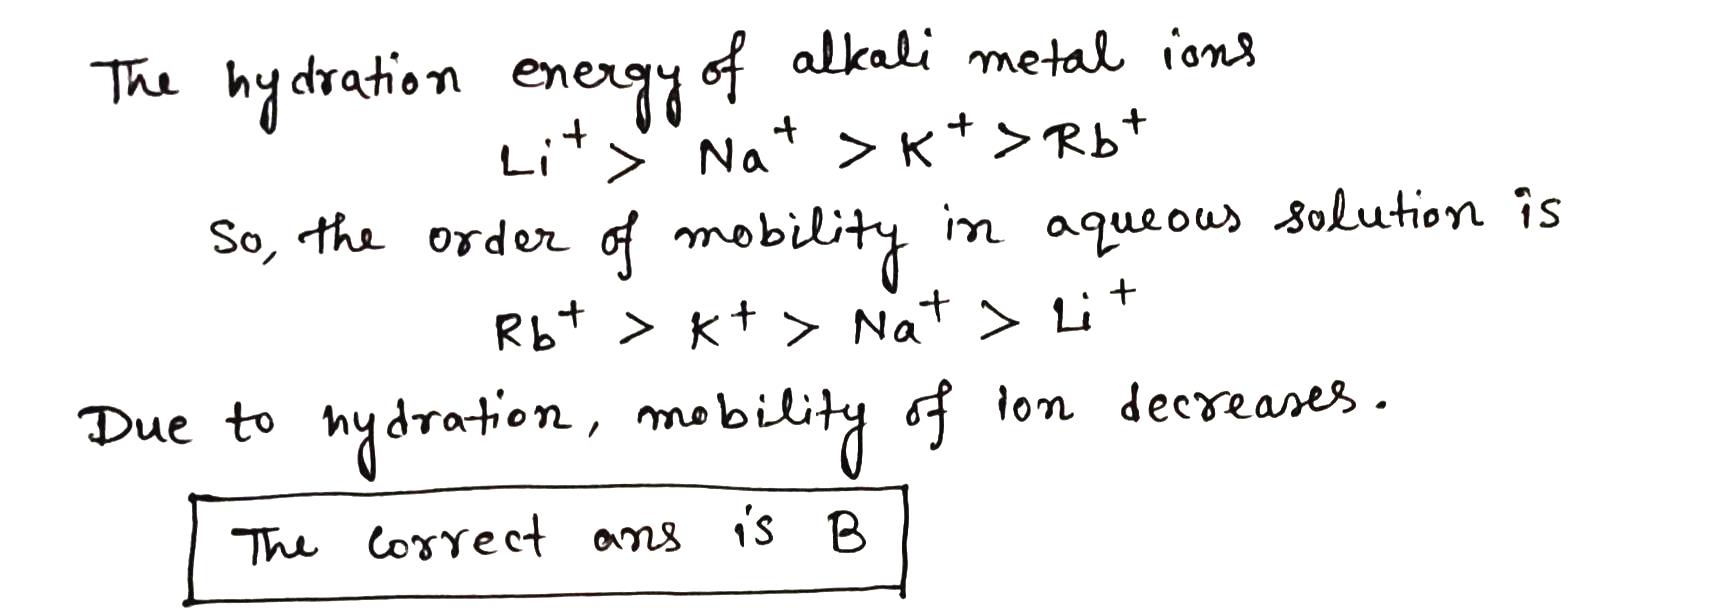 The hydration energy of alkali metal ions
Li⁺ > Na⁺ > K⁺ > Rb⁺
So, the order of mobility in aqueous solution is
Rb⁺ > K⁺ > Na⁺ > Li⁺
Due to hydration, mobility of ion decreases.
The correct ans is B